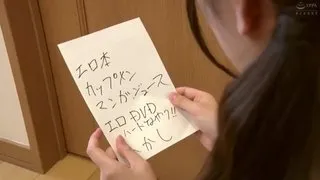 エロ本
カップメン
マンガジュース
エロDVD
ハードなやつ!!
かし